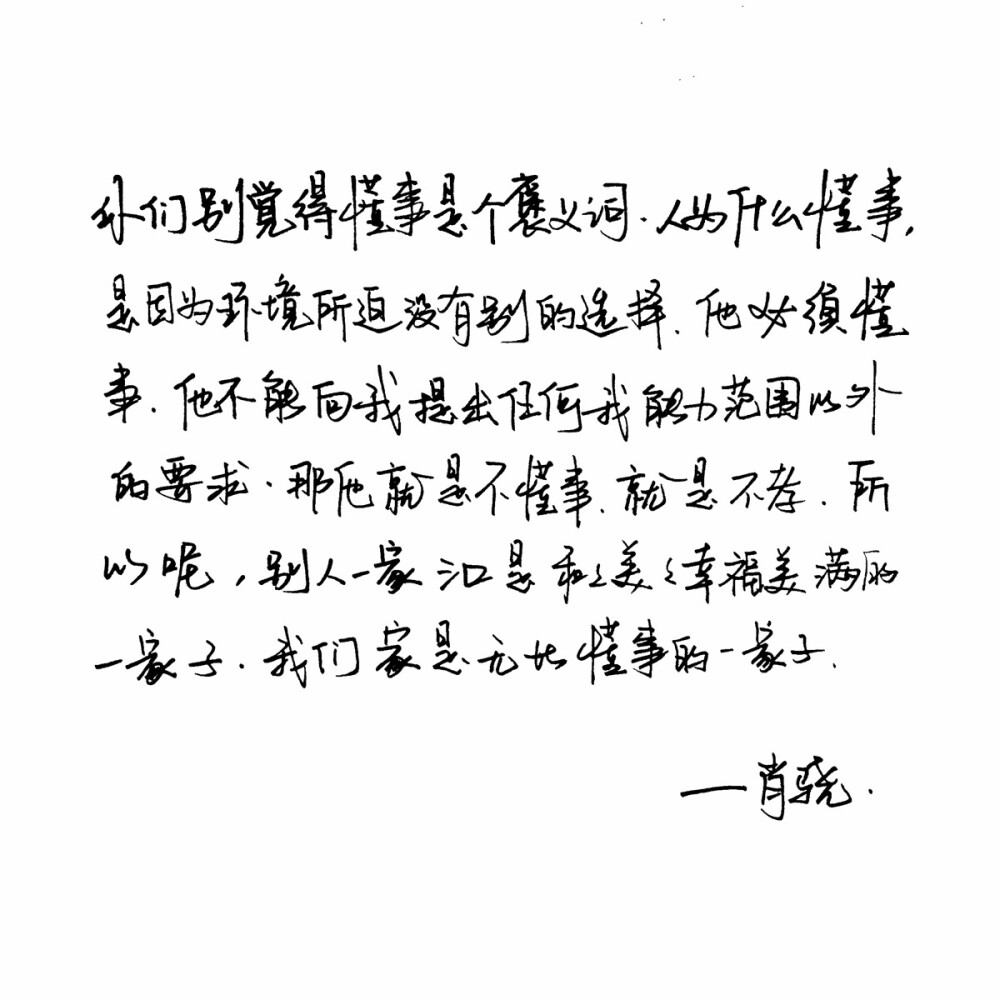 你们别觉得懂事是个褒义词.人为什么懂事,
是因为环境所迫没有别的选择.他必须懂
事.他不能向我提出任何我能力范围以外
的要求.那他就是不懂事.就是不孝.所
以呢,别人一家三口是和々美々幸福美满的
一家子.我们家是无比懂事的一家子.
——肖骁.